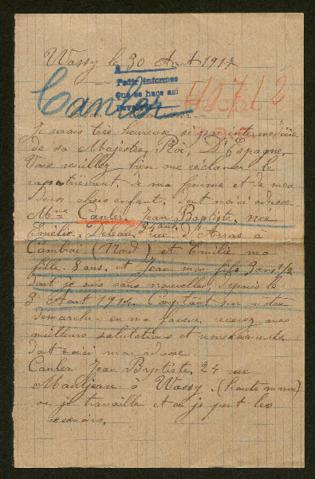 Wassy le 30 Aout 1917
Pedir informes
que se haga asi
Canler
Je serais très heureux si par intermédiaire
de sa Majestée, Roi, D'Espagne,
Vous veuillez bien me réclamer le
rapatriement, de ma femme et de mes
deux chers enfant. dont voici adresse
Mme Canler, Jean Baptiste, née
Emélie, rue D'Arras à
Cambrai (Nord) et Emilie ma
fille 8 ans. et Jean mon fils 3 ans 1/2
dont je suis sans nouvelles depuis le
3 Aout 1914. Comptant sur votre
démarche en ma faveur, recevez mes
meilleurs salutations et remerciements
dont voici mon adresse
Canler Jean Baptiste, 24 rue
à Wassy. (haute marne)
ou je travaille et où je peut les